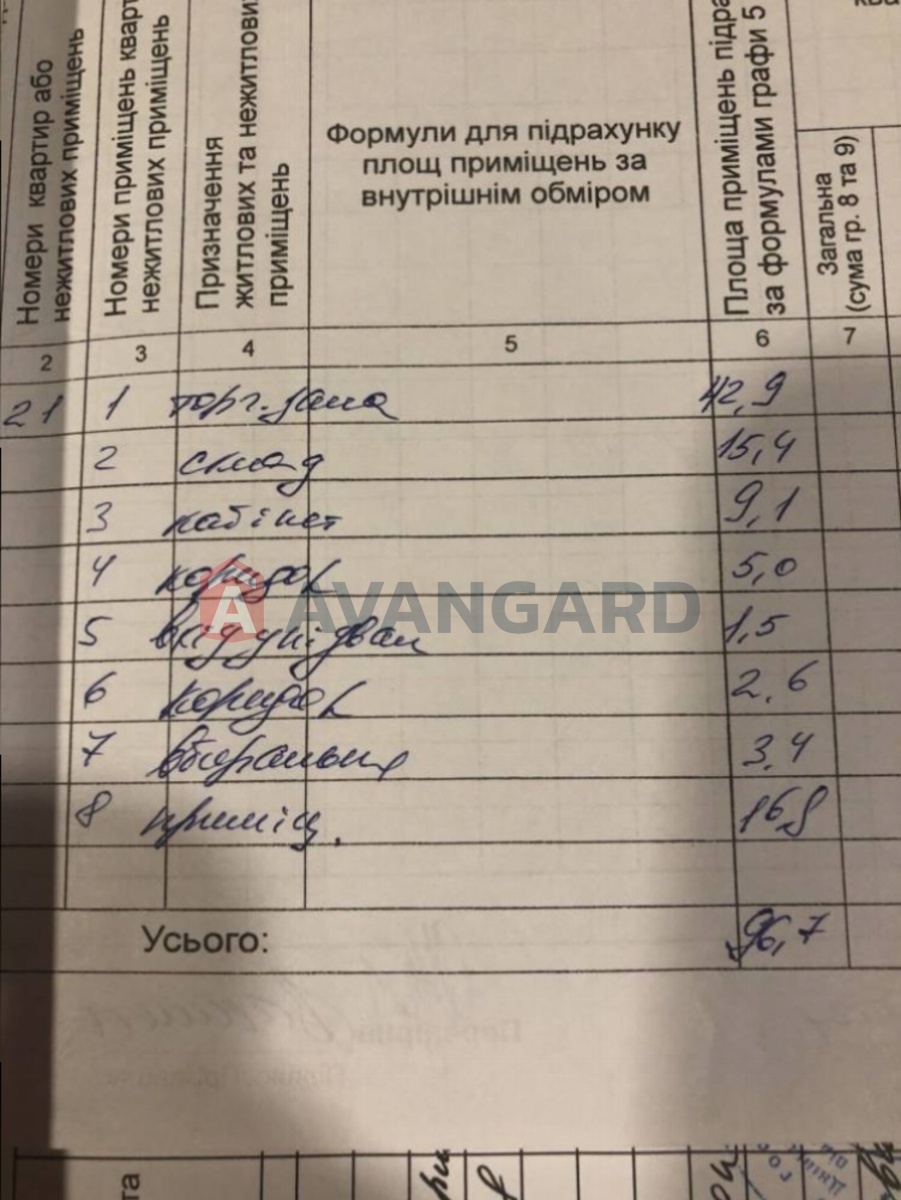 Номери квартир або
нежитлових приміщень
Номери приміщень кварт
нежитлових приміщень
Призначення
житлових та нежитлови
приміщень
Формули для підрахунку
площ приміщень за
внутрішнім обміром
Площа приміщень підра
за формулами графи 5
Загальна
(сума гр. 8 та 9)
2 3 4 5 6 7
21 1 торг. зала 42,9
2 склад 15,4
3 кабінет 9,1
4 коридор 5,0
5 вхід у підвал 1,5
6 коридор 2,6
7 вбиральня 3,4
8 приміщ. 16,8
Усього: 96,7
AVANGARD